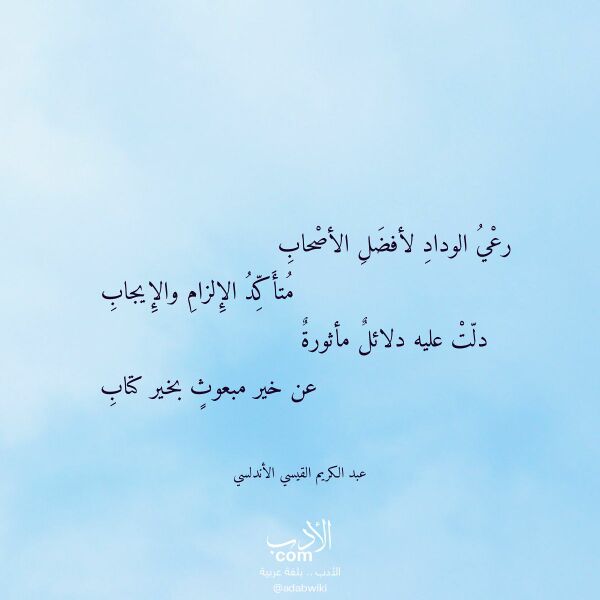 رعْيُ الودادِ لأفضَلِ الأصْحابِ
مُتأَكِّدُ الإِلزامِ والإِيجابِ
دلّتْ عليه دلائلٌ مأثورةٌ
عن خير مبعوثٍ بخير كتابِ
عبد الكريم القيسي الأندلسي
الأدب
com
الأدب .. بلغة عربية
@adabwiki